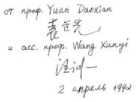 от проф. Yuan Daoxian
袁道先
и асс. проф. Wang Xunyi
汪训一
2 апрель 1992